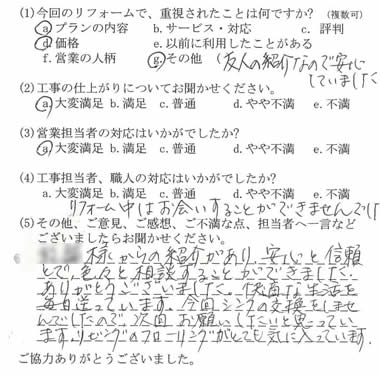 (1)今回のリフォームで、重視されたことは何ですか? (複数可)
a.プランの内容 b.サービス・対応 c.評判
d.価格 e.以前に利用したことがある
f.営業の人柄 g.その他(友人の紹介なので安心
していました
(2)工事の仕上がりについてお聞かせください。
a.大変満足 b.満足 c.普通 d.やや不満 e.不満
(3)営業担当者の対応はいかがでしたか?
a.大変満足 b.満足 c.普通 d.やや不満 e.不満
(4)工事担当者、職人の対応はいかがでしたか?
a.大変満足 b.満足 c.普通 d.やや不満 e.不満
リフォーム中はお会いすることができませんでした
(5)その他、ご意見、ご感想、ご不満な点、担当者へ一言など
ございましたらお聞かせください。
様からの紹介があり、安心と信頼
とで、色々と相談することができました。
ありがとうございました。快適な生活を
毎日送っています。今回シンクの交換をしませ
んでしたので、次回お願いしたいと思ってい
ます。リビングのフローリングがとても気に入っています。
ご協力ありがとうございました。